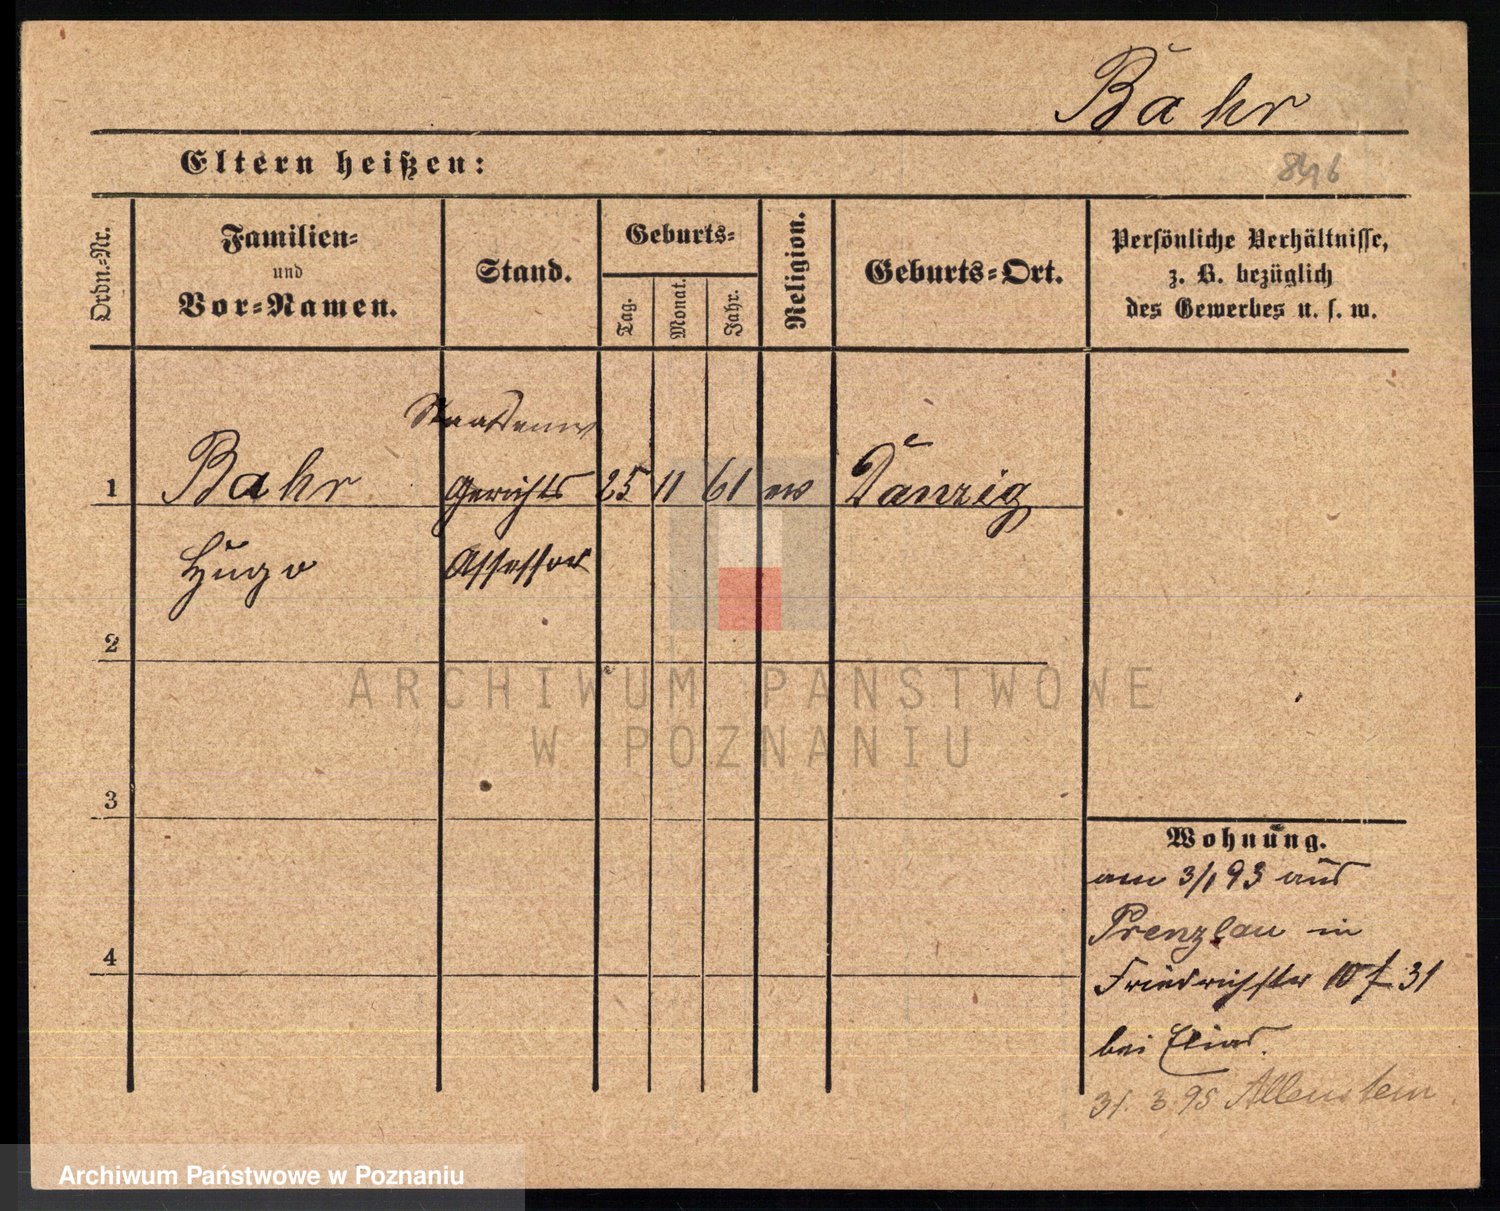 Bahr
Eltern heißen:
8446
Ordn.-Nr.
Familien-
und
Vor-Namen.
Stand.
Geburts-
Tag.
Monat.
Jahr.
Religion.
Geburts-Ort.
Persönliche Verhältnisse,
z. B. bezüglich
des Gewerbes u. s. w.
1 Bahr Gerichts 25 11 61 ev Danzig
Hugo Assessor
2
3
4
Wohnung.
am 3/1 93 aus
Prenzlau in
Friedrichstr 10 f 31
bei Elias.
31. 3. 95 Allenstein.
ARCHIWUM PAŃSTWOWE
W POZNANIU
Archiwum Państwowe w Poznaniu